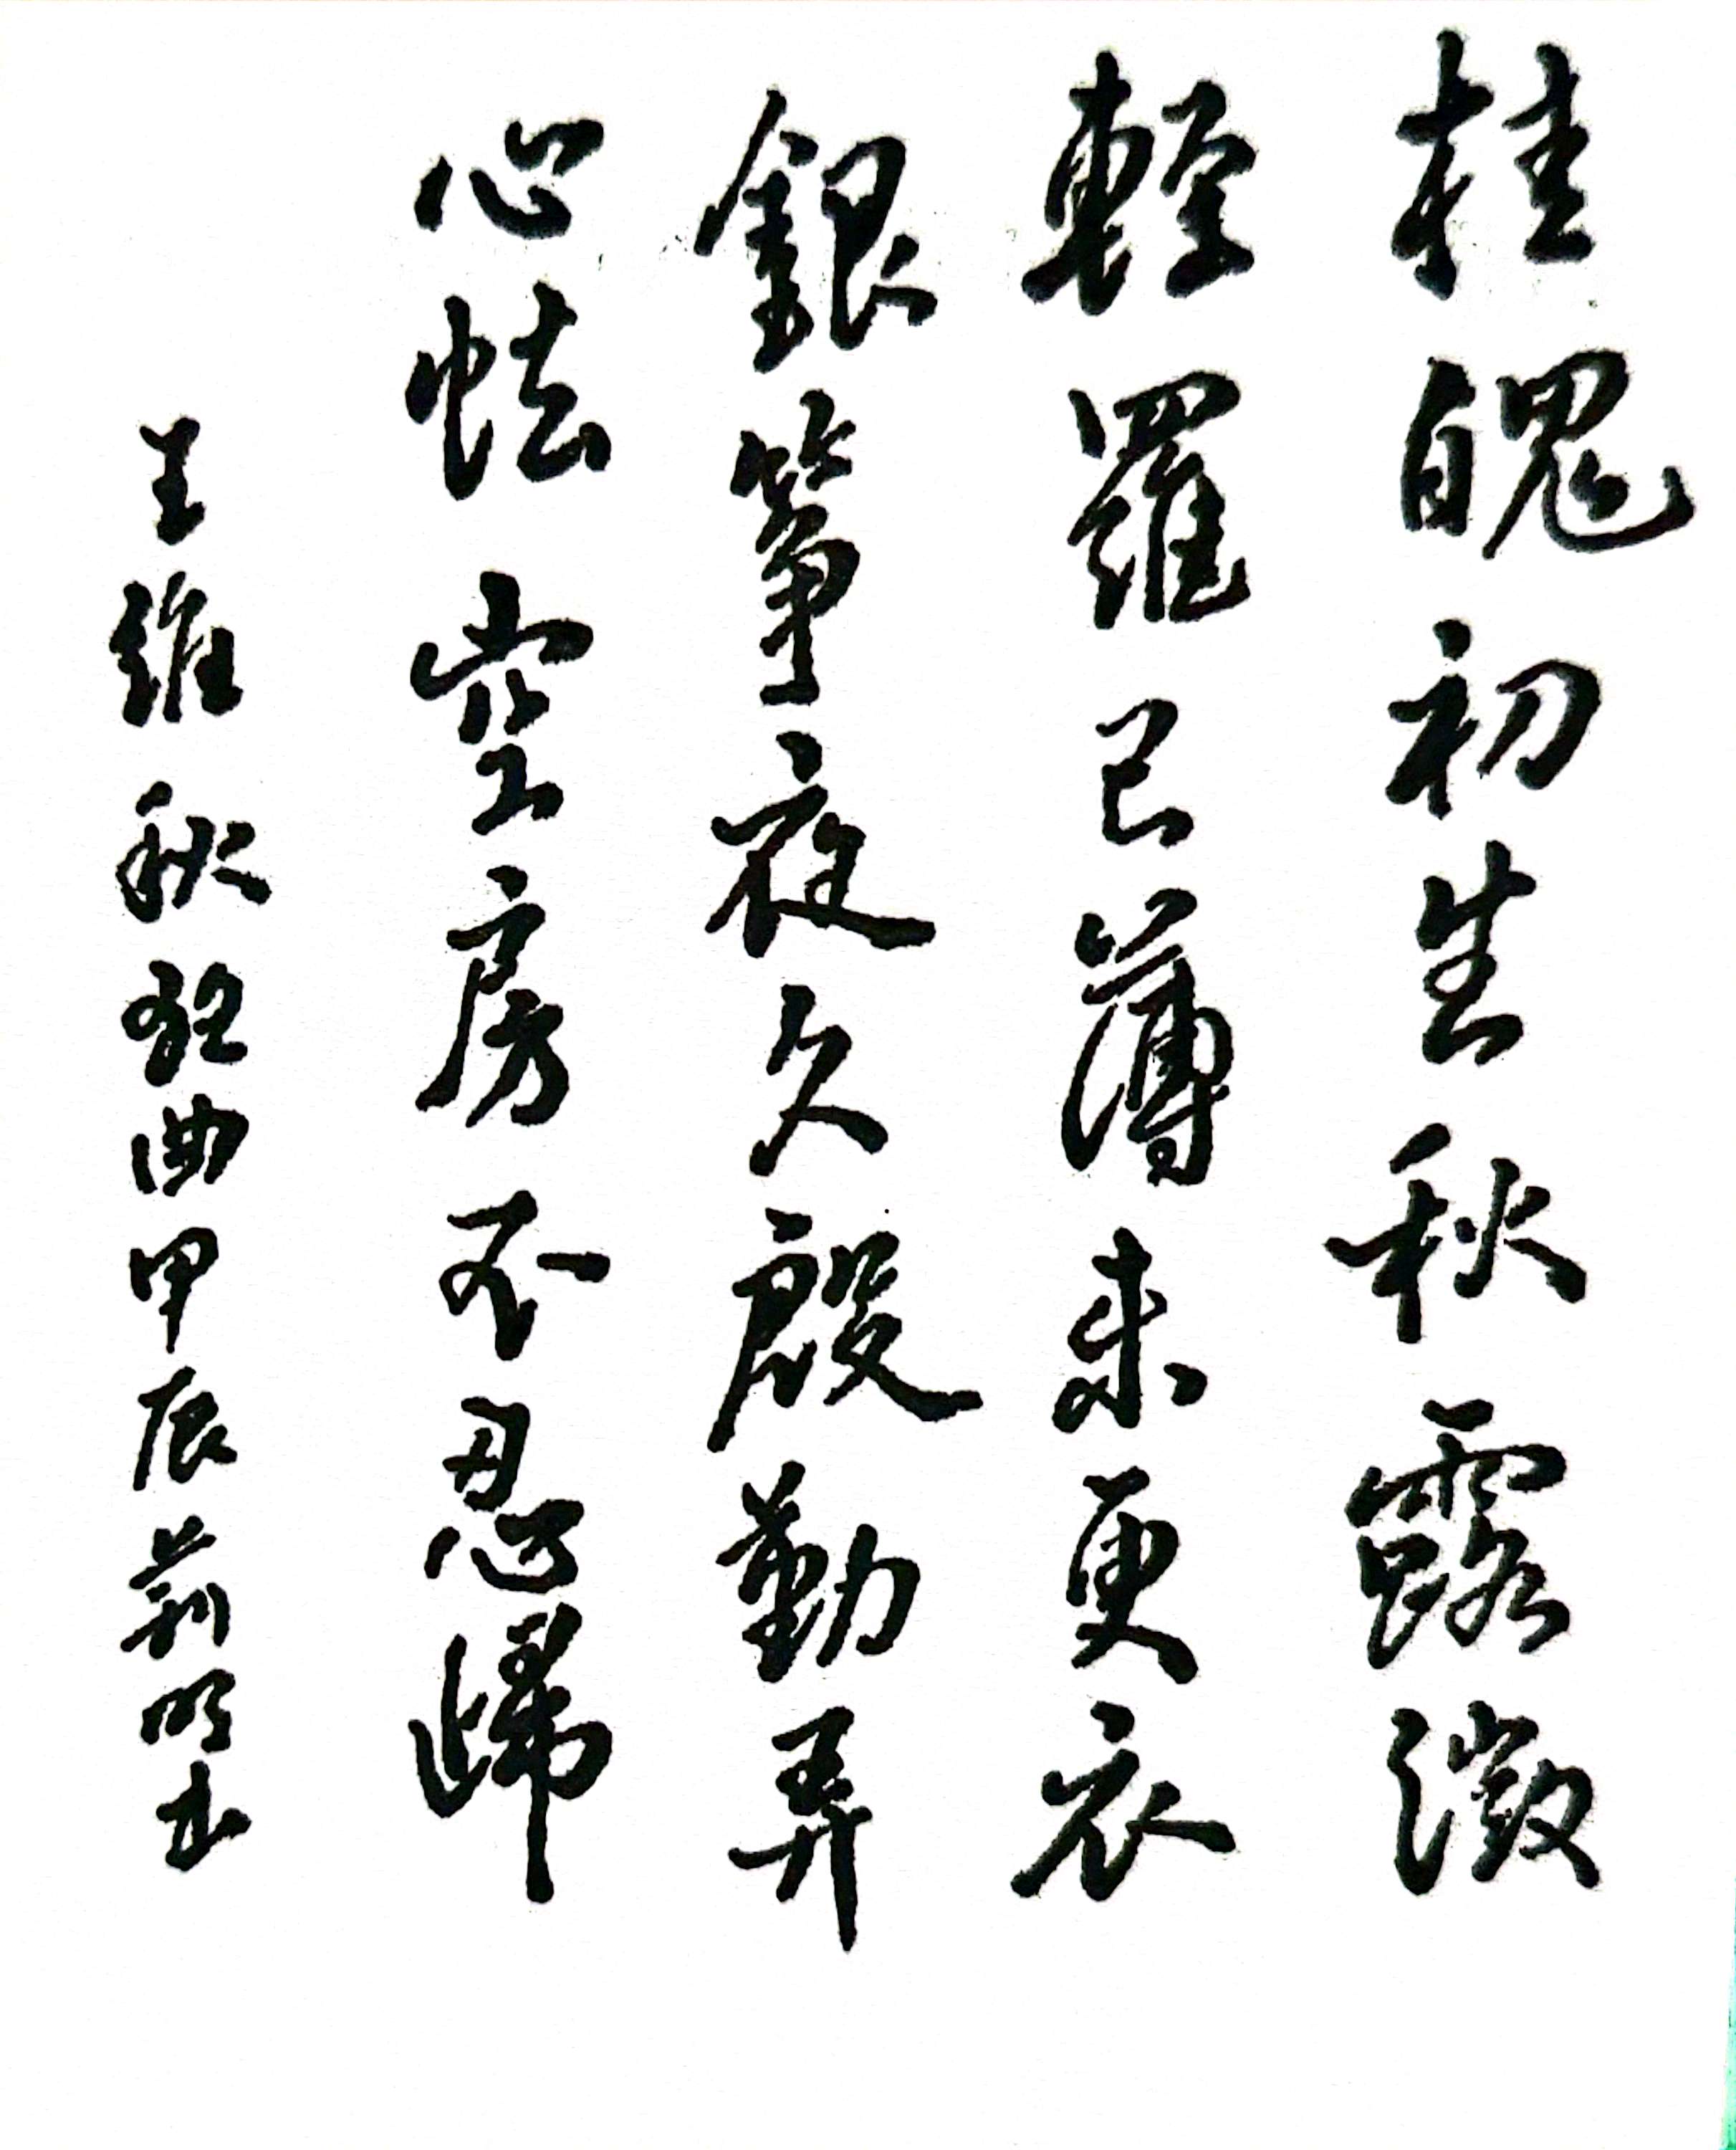 桂魄初生秋露微
輕羅已薄未更衣
銀箏夜久殷勤弄
心怯空房不忍歸
王維秋夜曲甲辰荊明书